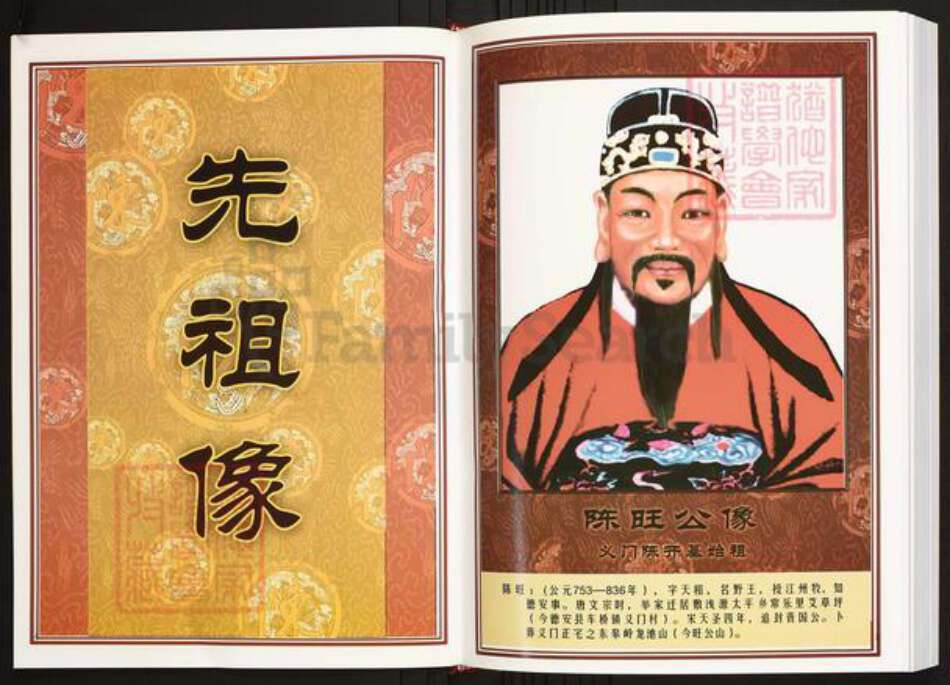 先祖像
陈旺公像
义门陈开基始祖
陈旺：（公元753—836年），字天相，名野王，授江州牧，知
德安事。唐文宗时，举家迁居敷浅源太平乡常乐里艾草坪
（今德安县车桥镇义门村）。宋天圣四年，追封晋国公。卜
葬义门正宅之东皋岭龙池山（今旺公山）。
FamilySearch